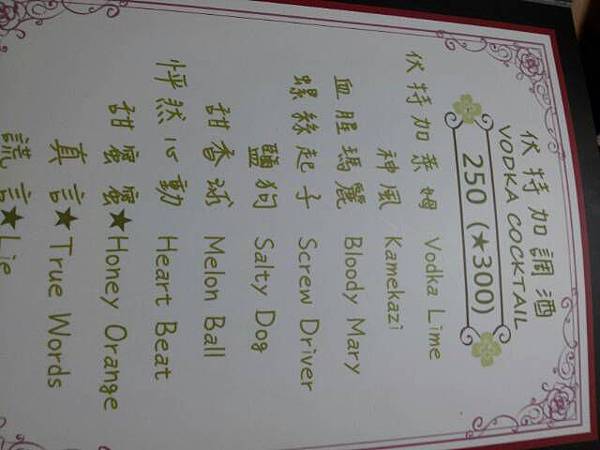 伏特加調酒
VODKA COCKTAIL
250 (★300)
伏特加萊姆 Vodka Lime
神風 Kamekazi
血腥瑪麗 Bloody Mary
螺絲起子 Screw Driver
鹽狗 Salty Dog
甜香球 Melon Ball
怦然心動 Heart Beat
甜蜜蜜★Honey Orange
真言★True Words
謊言★Lie